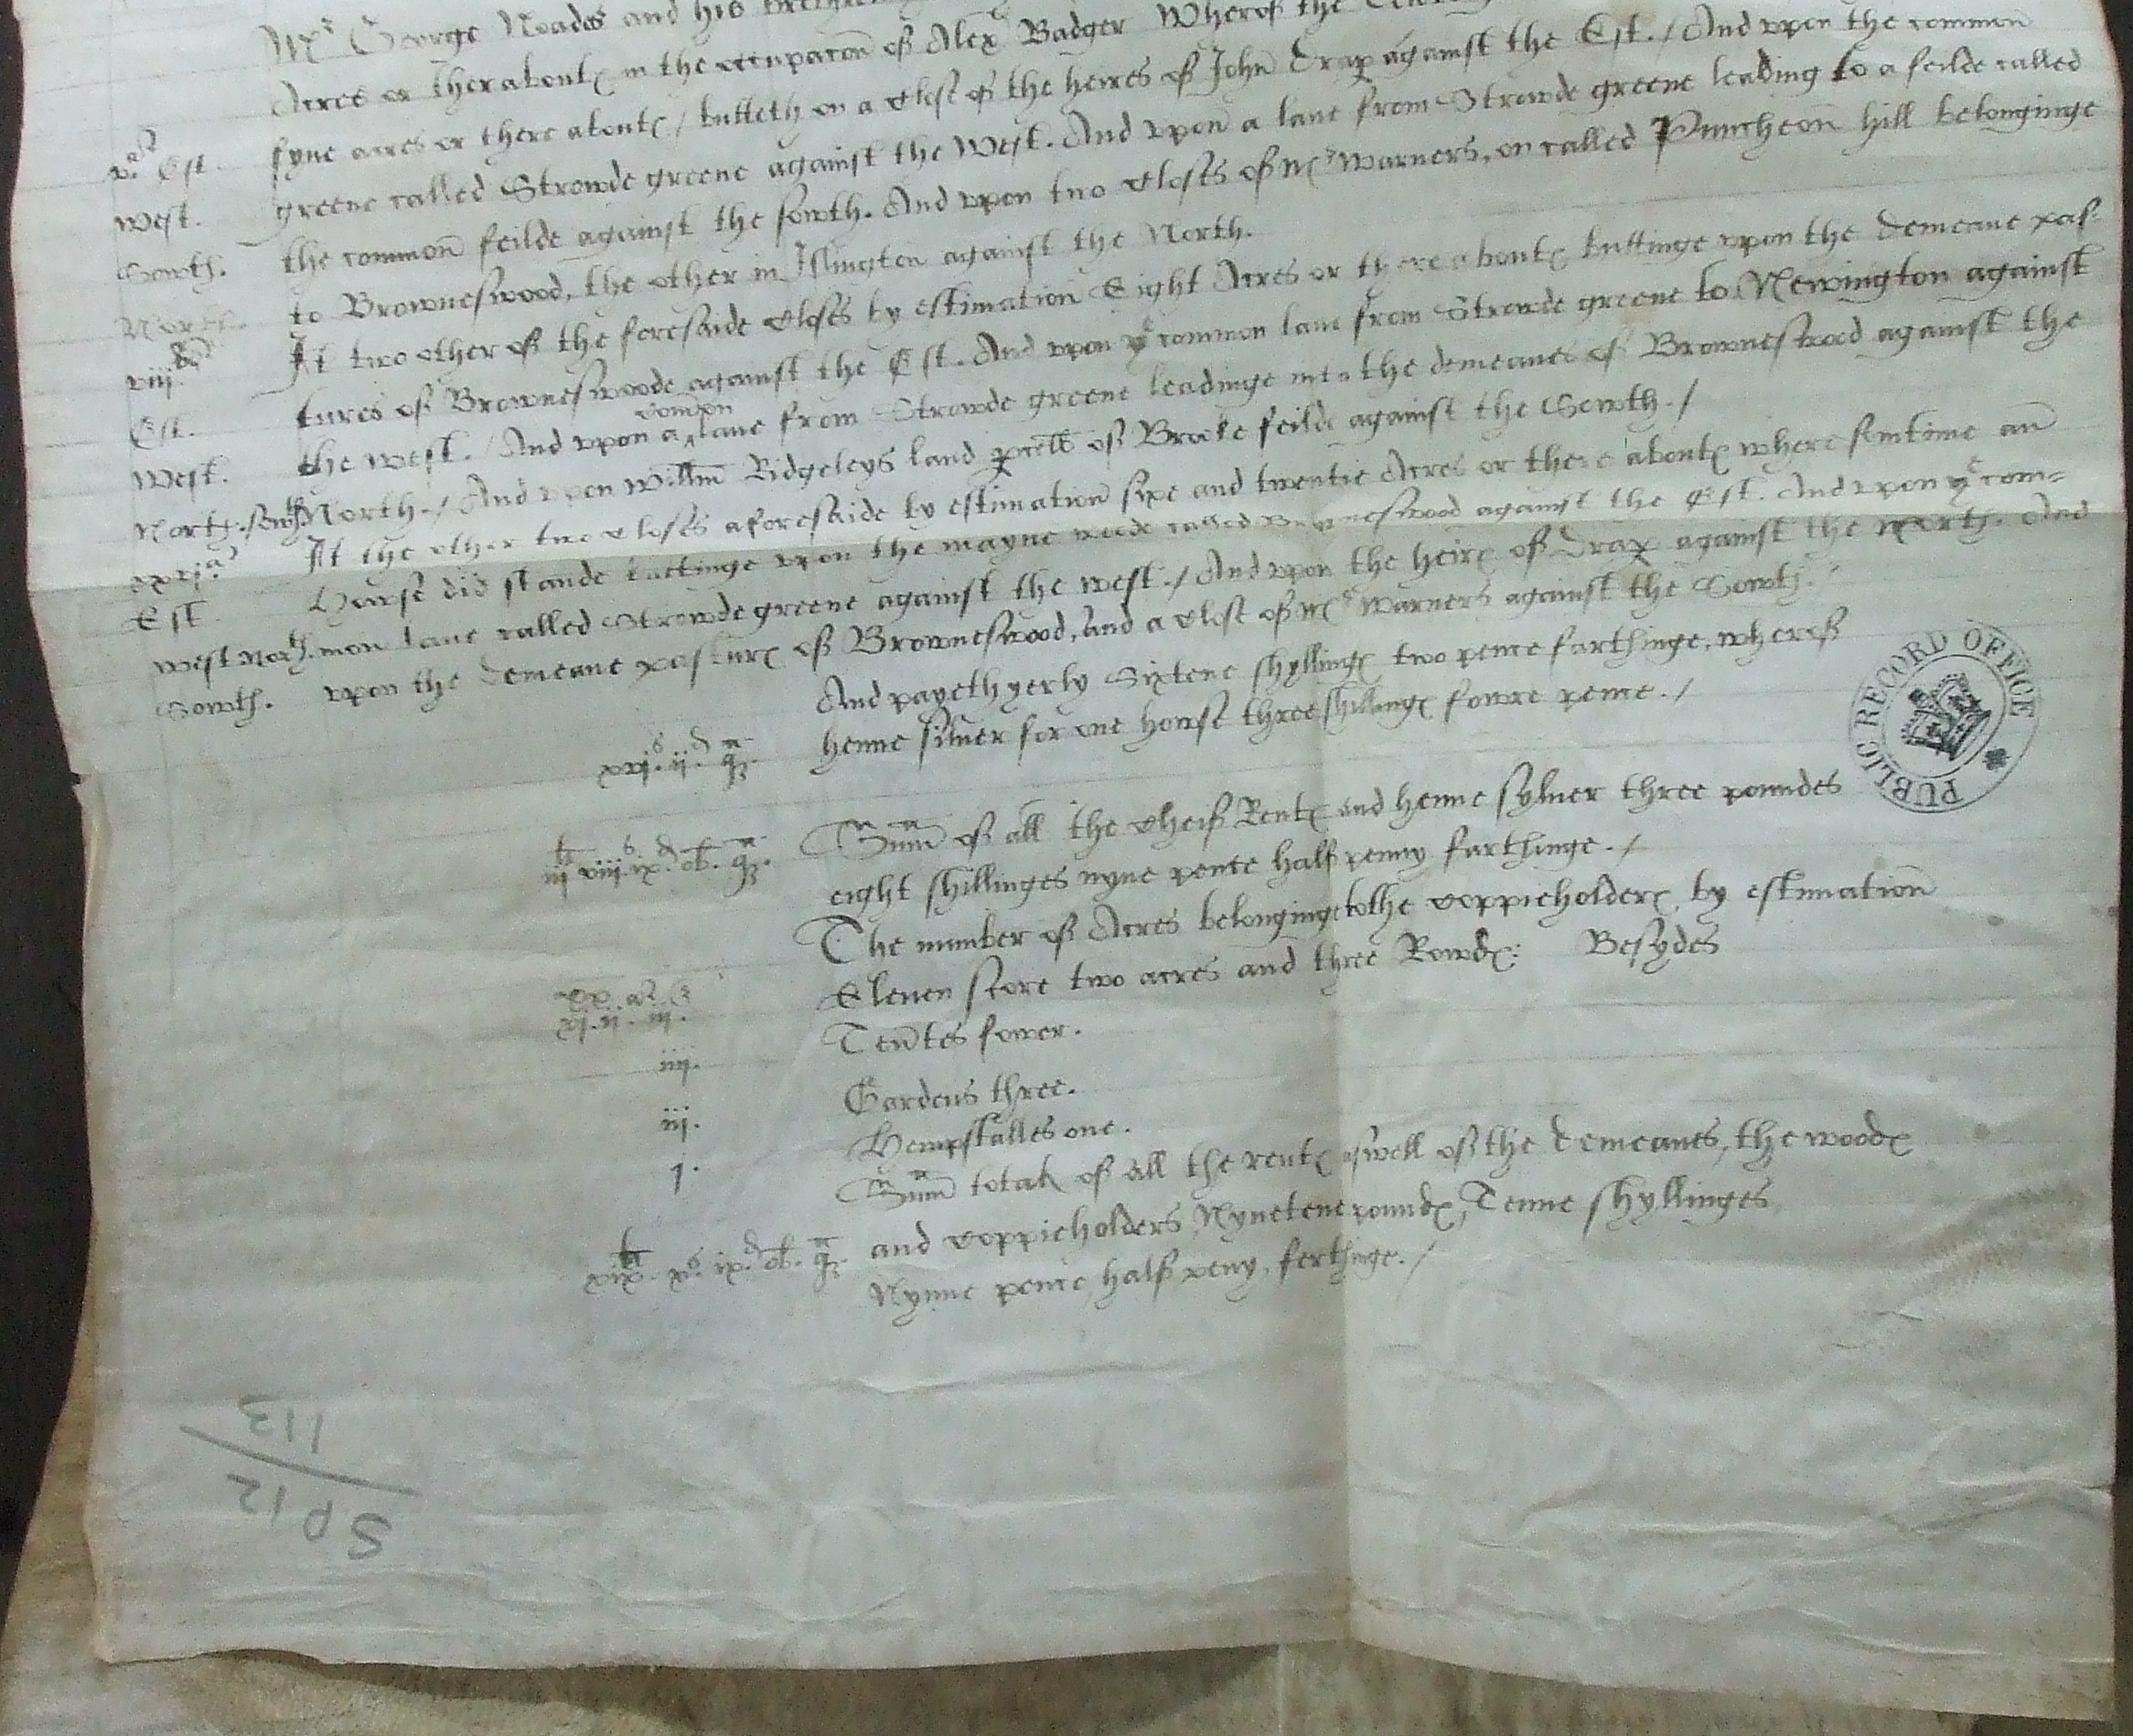 Mr George Noades and his
Acres or theraboutes in the occupacon of Alex Badger Wherof the
v. a Est. fyve acres or there aboutes / butteth on a close of the heires of John Drap against the Est. / And vpon the common
West. greene called Strowde greene against the West. And vpon a lane from Strowde greene leading to a feilde called
Sowth. the common feilde against the sowth. And vpon two closes of Mr Warners, on called Puncheon hill belonginge
North. to Browneswood, the other in Islington against the North.
viij. It two other of the foresaide closes by estimation Eight Acres or there aboutes buttinge vpon the demeane pas-
Est. tures of Browneswoode against the Est. And vpon ye common lane from Strowde greene to Newington against
West. the west. / And vpon a common lane from Strowde greene leadinge into the demeanes of Browneswood against the
North. / sowth North. / And vpon Willm Ridgeleys land pcell of Brooke feilde against the Sowth. /
xxvj. a It the other two closes aforesaide by estimation sixe and twentie Acres or there aboutes where somtime an
Est. Howse did stande buttinge vpon the mayne wode called Browneswood against the Est. And vpon ye com-
West North. mon lane called Strowde greene against the west. / And vpon the heires of Drap against the North. And
Sowth. vpon the demeane pastures of Browneswood, and a close of Mr Warners against the Sowth. /
And payeth yerly Sixtene shyllinges two pence farthinge, wherof
xvj.s ij.d qa. henne silver for one howse three shillinges fowre pence. /
Summ of all the cheif Rentes and henne sylver three poundes
iij li viij.s ix.d ob. qa. eight shillinges nyne pence half penny farthinge. /
The number of Acres belonginge to the coppieholders, by estimation
xj. ij. iij. Eleven score two acres and three Rowdes: Besydes
iiij. Tentes fower.
iij. Gardens three.
j. Hempstalles one.
Summ totall of all the rentes aswell of the demeanes, the woodes
xix li x.s ix.d ob. qa. and coppieholders, Nynetene poundes, Tenne shyllinges
Nynne pence, half peny, ferthinge. /
PUBLIC RECORD OFFICE
SP 12
113